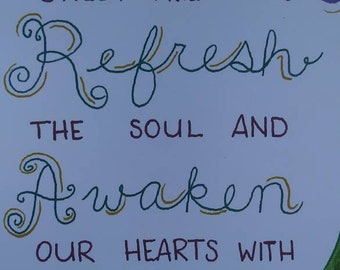 Refresh
THE SOUL AND
Awaken
OUR HEARTS WITH